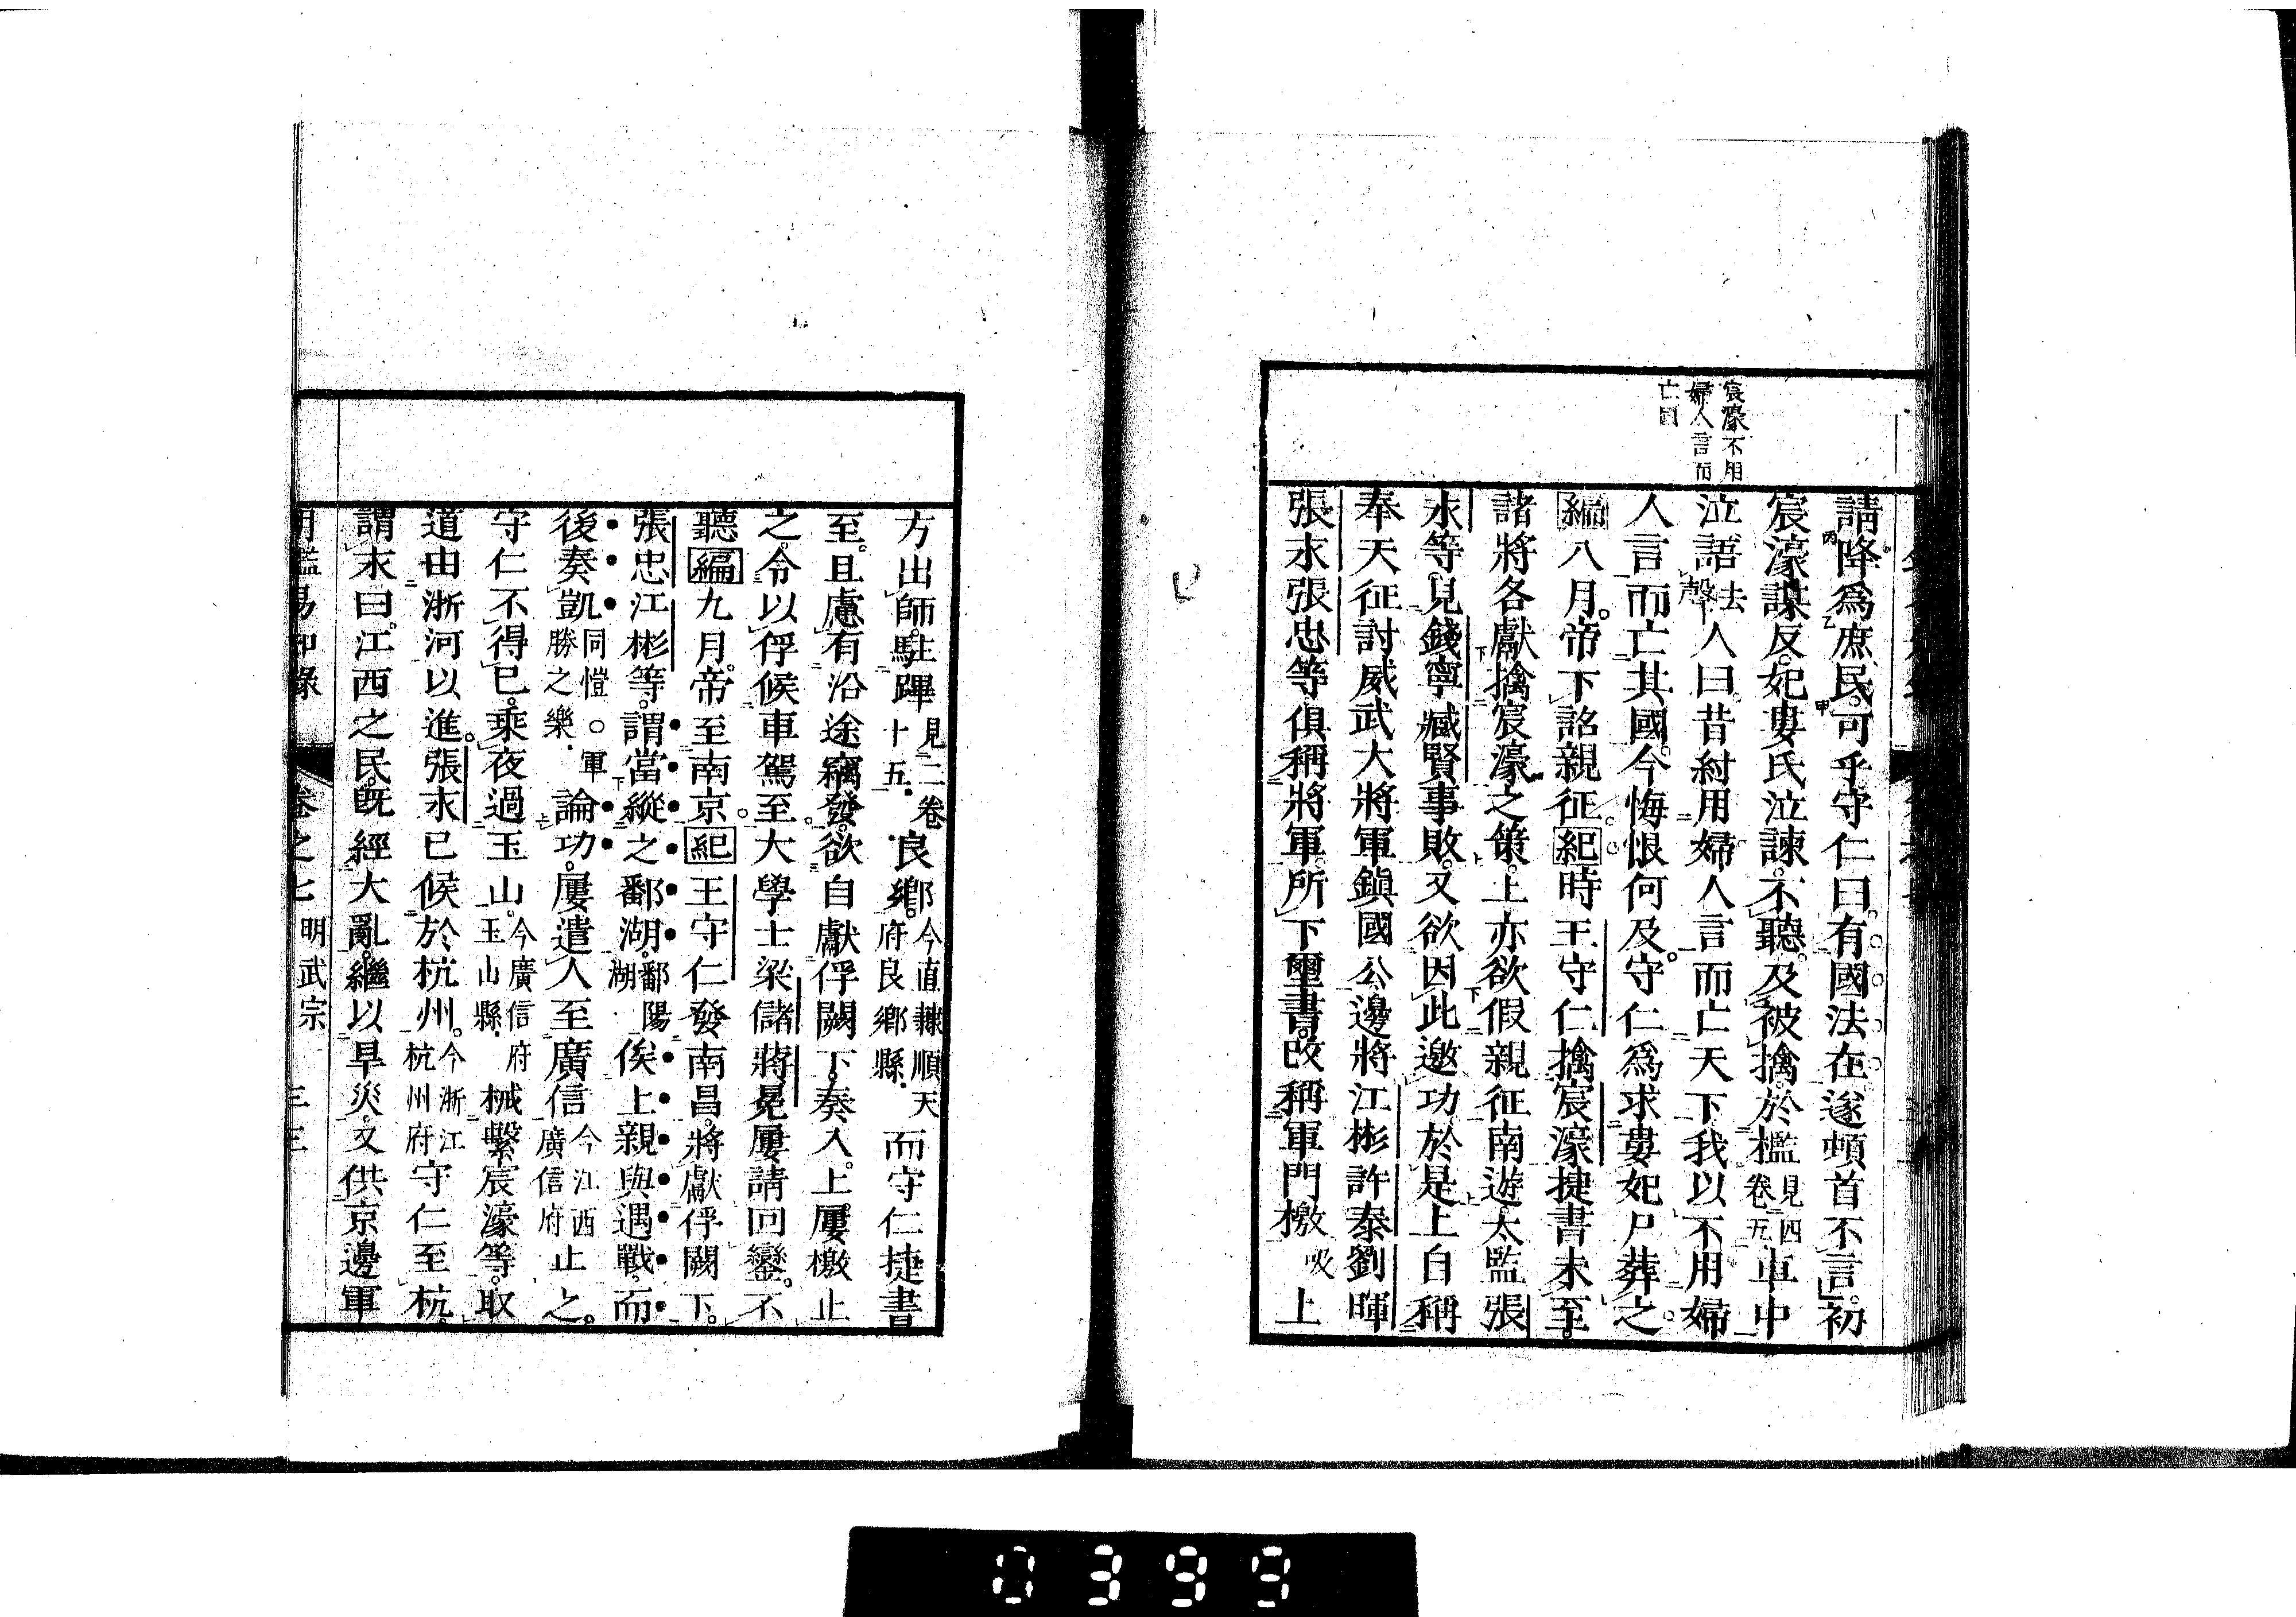 宸濠不用
婦人言而
亡國
請降爲庶民可乎守仁曰有國法在遂頓首不言初
宸濠謀反妃婁氏泣諫不聽及被擒於檻見四卷五車中
泣語去聲人曰昔紂用婦人言而亡天下我以不用婦
人言而亡其國今悔恨何及守仁爲求婁妃尸葬之
編八月帝下詔親征紀時王守仁擒宸濠捷書未至
諸將各獻擒宸濠之策上亦欲假親征南遊太監張
永等見錢寧臧賢事敗又欲因此邀功於是上自稱
奉天征討威武大將軍鎮國公邊將江彬許泰劉暉
張永張忠等俱稱將軍所下璽書改稱軍門檄吸上
方出師駐蹕見二卷十五良鄉今直隸順天府良鄉縣而守仁捷書
至且慮有沿途竊發欲自獻俘闕下奏入上屢檄止
之令以俘候車駕至大學士梁儲蔣冕屢請回鑾不
聽編九月帝至南京紀王守仁發南昌將獻俘闕下
張忠江彬等謂當縱之鄱湖鄱陽湖俟上親與遇戰而
後奏凱同愷○軍勝之樂論功屢遣人至廣信今江西廣信府止之
守仁不得已乘夜過玉山今廣信府玉山縣械繫宸濠等取
道由浙河以進張永已候於杭州今浙江杭州府守仁至杭
謂永曰江西之民旣經大亂繼以旱災又供京邊軍
明鑑易知錄 卷之七 明武宗
0399